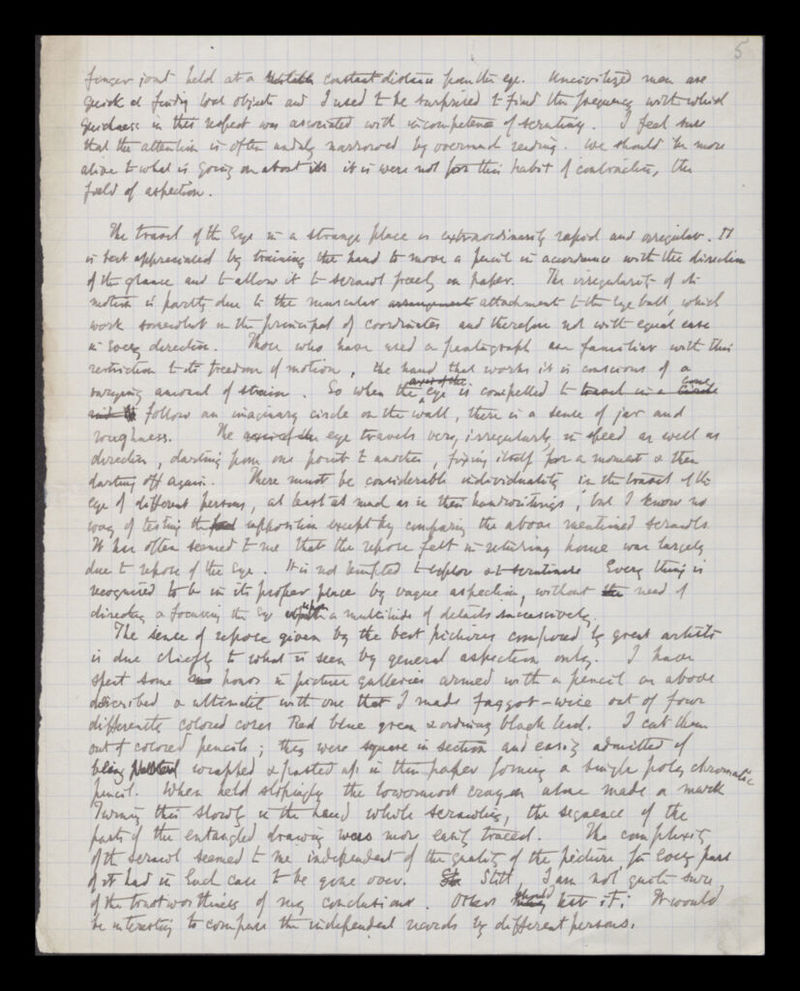 5
finger joint held at a constant distance from the eye. Uncivilized men are
quick at finding lost objects and I used to be surprised to find the frequency with which
quickness in this respect was associated with incompetence of scrutiny. I feel sure
that the attention is often unduly narrowed by overmuch reading. We should be more
alive to what is going on about us it is were not for this habit of contracting the
field of aspection.
The travel of the Eye in a strange place is extraordinarily rapid and irregular. It
is best appreciated by training the hand to move a pencil in accordance with the direction
of the glance and to allow it to scrawl freely on paper. The irregularity of its
motion is partly due to the muscular arrangement attachment to the eye ball, which
work somewhat on the principal of coordinates and therefore not with equal ease
in every direction. Those who have used a pentegraph are familiar with this
restriction to its freedom of motion, the hand that works it is conscious of a
varying amount of strain. So when the axis of the eye is compelled to travel in a circle
follow an imaginary circle on the wall, there is a sense of jar and
roughness. The axis of the eye travels very irregularly in speed as well as
direction, darting from one point to another, fixing itself for a moment & then
darting off again. There must be considerable individuality in the travel of the
eye of different persons, at least as much as in their handwritings, but I know no
way of testing the supposition except by comparing the above mentioned scrawls.
It has often seemed to me that the repose felt in returning home was largely
due to repose of the Eye. It is not tempted to explore or to scrutinise Every thing is
recognised to be in its proper place by vague aspection, without the need of
directing or focussing the Eye upon a multitude of details successively.
The sense of repose given by the best pictures composed by great artists
is due chiefly to what is seen by general aspection only. I have
spent some hours in picture galleries armed with a pencil as above
described & ultimately with one that I made faggot-wise out of four
differently colored cores Red blue green & ordinary black lead. I cut them
out of colored pencils; they were square in section and easily admitted of
being wrapped & pasted up in thin paper forming a single poly chromatic
pencil. When held slopingly the lowermost crayon alone made a mark
Turning this slowly in the hand while scrawling, the sequence of the
parts of the entangled drawing was more easily traced. The complexity
of the scrawl seemed to me independent of the quality of the picture, for every part
of it had in each case to be gone over. Still, I am not quite sure
of the trustworthiness of my conclusions. Others should test it; It would
be interesting to compare the independent records by different persons.